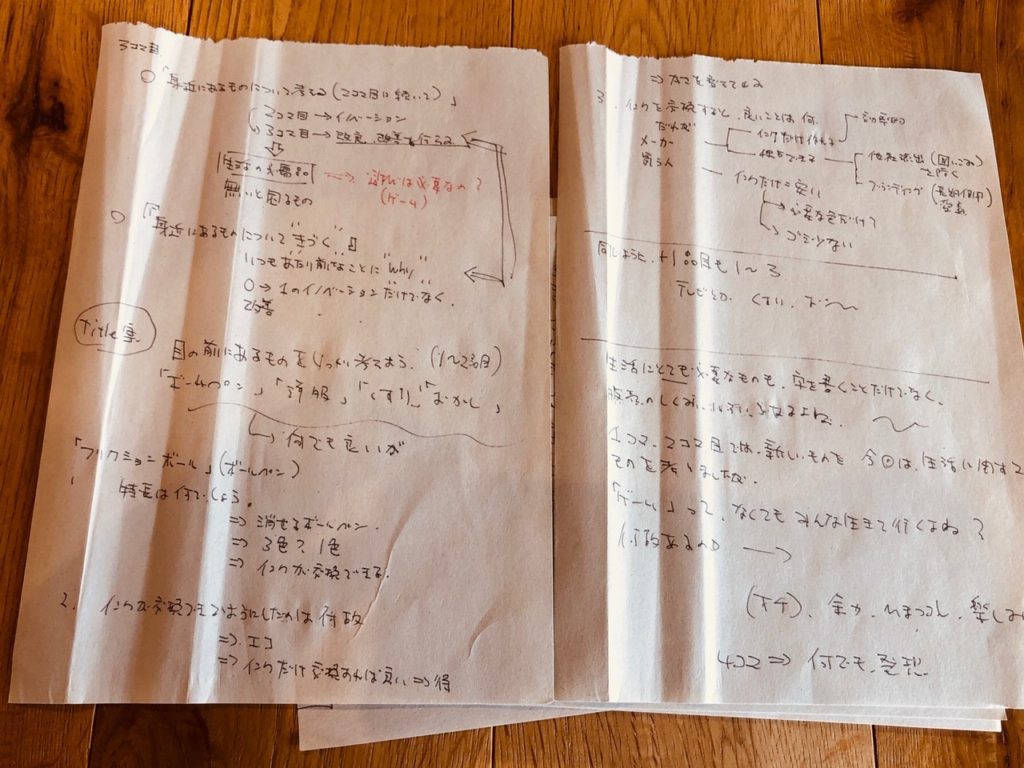 3コマ目
○「身近にあるものについて考える(2コマ目に続いて)」
2コマ目→イノベーション
3コマ目→改良、改善を行うよる
生活の必需品 ⇒ は必要なの?
(ゲーム)
無いと困るもの
○「身近にあるものについて"きづく"」
いつもあたり前なことに"Why"
0→1のイノベーションだけでなく、
改善
Title案
目の前にあるものをしっかり考てみよう。(1〜2品目)
「ボールペン」「洋服」「くすり」「おかし」
何でも良いが
「フリクションボール」(ボールペン)
1. 特長は何でしょう。
⇒消せるボールペン
⇒3色?1色
⇒インクが交換できる。
2. インクが交換できるようにしたのは何故
⇒エコ
⇒インクだけ交換すれば良い⇒得
3. インクを交換すると、良いことは何。
だれが
メーカー インクだけ作れる 効率的
他社流出(囲いこみ)を防ぐ
ブランディング(長期使用)
買う人 インクだけ=安い
必要な色だけ?
ゴミ少ない
同じように、+1品目も1〜3
テレビとか、くすり、
生活にとても必要なものも、字を書くことだけでなく、
販売のしくみ
1コマ、2コマ目では、新しいものを 今回は、生活に
ものを考えましたが、
「ゲーム」って、なくてもみんな生きて行くよね?
何故あるの →
余力、ひまつぶし、楽しみ
4コマ⇒何でも、発想